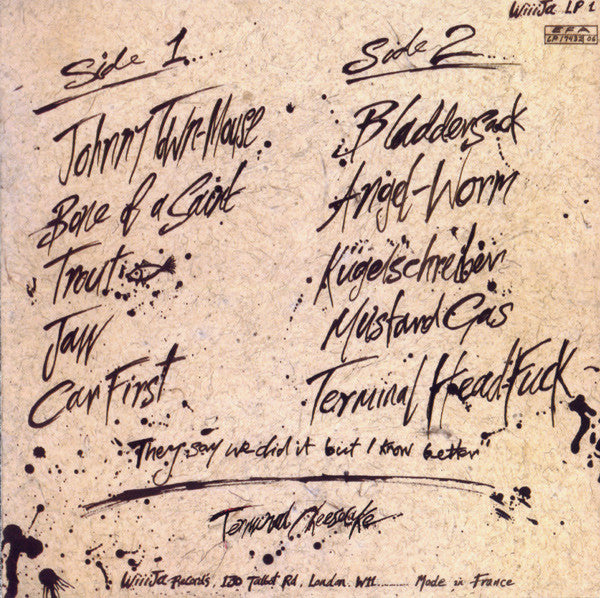 WiiiJa LP 1
EFA
LP 17932 06
Side 1....
Johnny Town-Mouse
Bone of a Saint
Trout
Jaw
Car First
Side 2....
Bladdersack
Angel-Worm
Kügelschreiber
Mustard Gas
Terminal Head-Fuck
"They say we did it but I know better"
Terminal Cheesecake
WiiiJa Records, 130 Talbot Rd, London. W11.......... Made in France